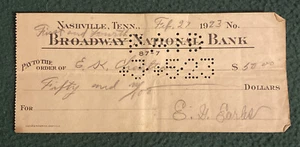 NASHVILLE, TENN., Feb. 27 1923 No.
First and Fourth
BROADWAY NATIONAL BANK
87-7
PAY TO THE
ORDER OF E. K. $ 50.00
Fifty and DOLLARS
FOR E. G.